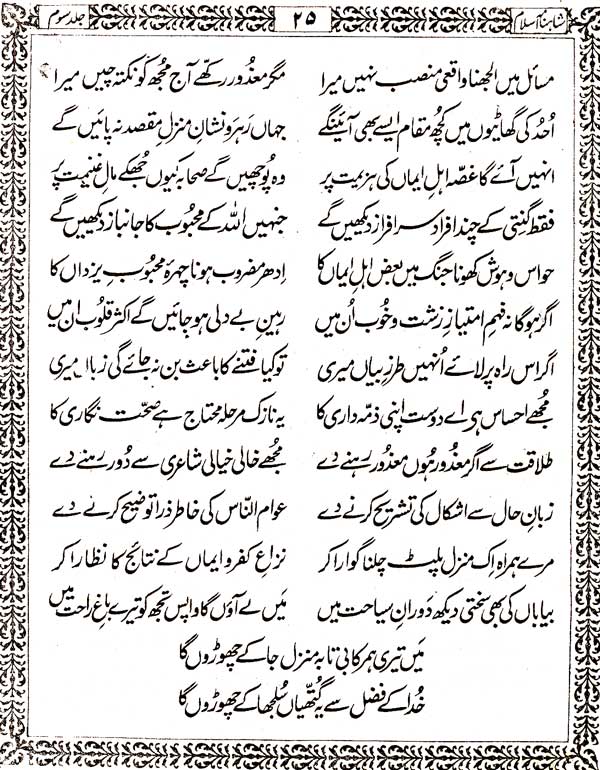 شاہنامۂ اسلام ۲۵ جلد سوم
مسائل میں الجھنا واقعی منصب نہیں میرا مگر معذور رکھے آج مجھ کو نکتہ چیں میرا
اُحد کی گھاٹیوں میں کچھ مقام ایسے بھی آئینگے جہاں رہرو نشانِ منزلِ مقصد نہ پائیں گے
انہیں آئے گا غصّہ اہلِ ایماں کی ہزیمت پر وہ پوچھیں گے صحابہ کیوں جُھکے مالِ غنیمت پر
فقط گنتی کے چند افراد سرافراز دیکھیں گے جنہیں اللہ کے محبوب کا جانباز دیکھیں گے
حواس و ہوش کھونا جنگ میں بعض اہلِ ایماں کا اِدھر مضروب ہونا چہرۂ محبوبِ یزداں کا
اگر ہوگا نہ فہمِ امتیازِ زشت و خوب اُن میں رہینِ بے دلی ہو جائیں گے اکثر قلُوب ان میں
اگر اس راہ پر لائے اُنہیں طرزِ بیاں میری تو کیا فتنے کا باعث بن نہ جائے گی زباں میری
مجھے احساس ہے اے دوست اپنی ذمّہ داری کا یہ نازک مرحلہ محتاج ہے صحّت نگاری کا
طلاقت سے اگر معذُور ہُوں معذُور رہنے دے مجھے خالی خیالی شاعری سے دُور رہنے دے
زبانِ حال سے اشکال کی تشریح کرنے دے عوام النّاس کی خاطر ذرا توضیح کرنے دے
مرے ہمراہ اِک منزل پلٹ چلنا گوارا کر نزاعِ کفر و ایماں کے نتائج کا نظارا کر
بیاباں کی بھی سختی دیکھ دَورانِ سیاحت میں مَیں لے آؤں گا واپس تجھ کو تیرے باغِ راحت میں
مَیں تیری ہمرکابی تا بہ منزل جا کے چھوڑوں گا
خُدا کے فضل سے یہ گتھّیاں سُلجھا کے چھوڑوں گا